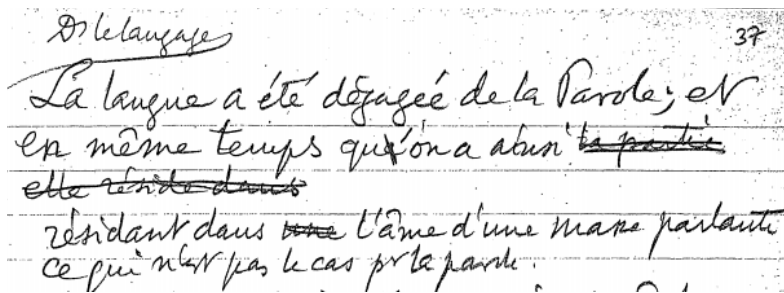 Ds le langage
37
La langue a été dégagée de la Parole; et
en même temps qu'on a ainsi la partie
elle réside dans
résidant dans une l'âme d'une masse parlante
ce qui n'est pas le cas pr la parole.